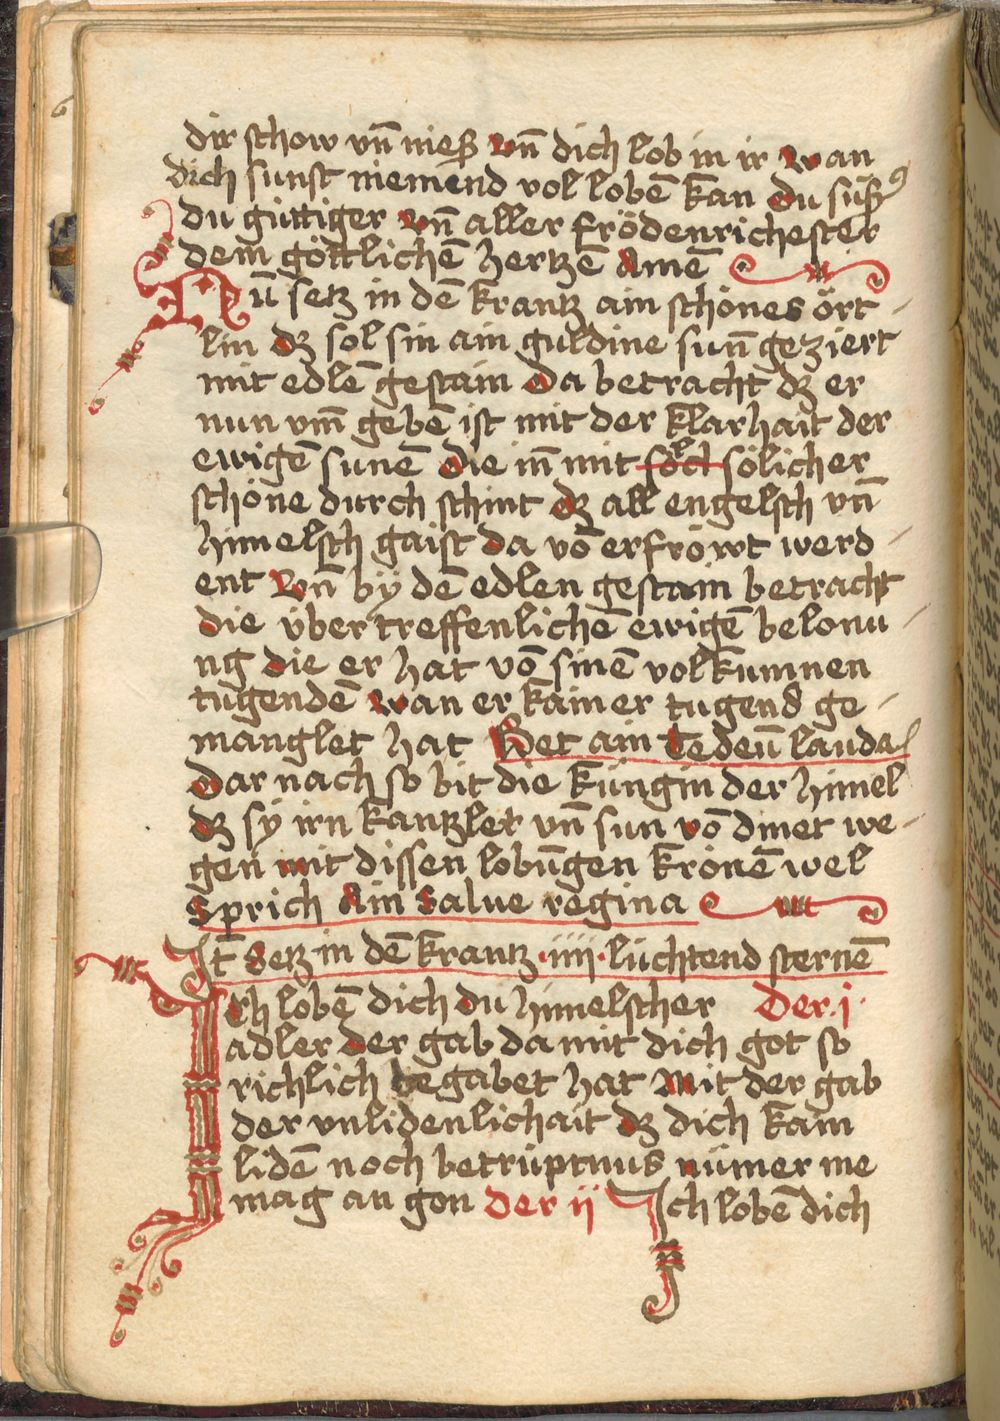 dir schow vn̄ nieß vn̄ dich lob in ir wan
dich sunst niemend vol lobē kan du süßꝰ
du güttiger vn̄ aller frödenrichester
dem göttlichē hertzē Amē
Nū setz in dē krantz ain schönes ört-
lin dz sol sin ain guldine sun̄ geziert
mit edlē gestain da betracht dz er
nun vm̄ gebē ist mit der klarhait der
ewigē sunē die in̄ mit söch sölicher
schöne durch schint dz all engelsch vn̄
himelsch gaist da vō erfröwt werd-
ent vn̄ bÿ dē edlen gestain betracht
die über treffenlichē ewigē belonu-
ng die er hat vō sinē volkumnen
tugendē wan er kainer tugend ge-
manglet hat Bet ain Te deū lauda
Dar nach so bit die küngin der himel
dz sÿ irn kantzler vn̄ sun vō dinet we-
gen mit dissen lobūgen krönē wel
Sprich Ain Salue regina
It̄ Setz in dē krantz ·iiii· lüchtend sternē
Ich lobē dich du himelscher Der ·i·
adler der gab da mit dich got so
richlich begabet hat mit der gab
der vnlidenlichait dz dich kain
lidē noch betrüptnus nümer me
mag an gon der ii Ich lobē dich